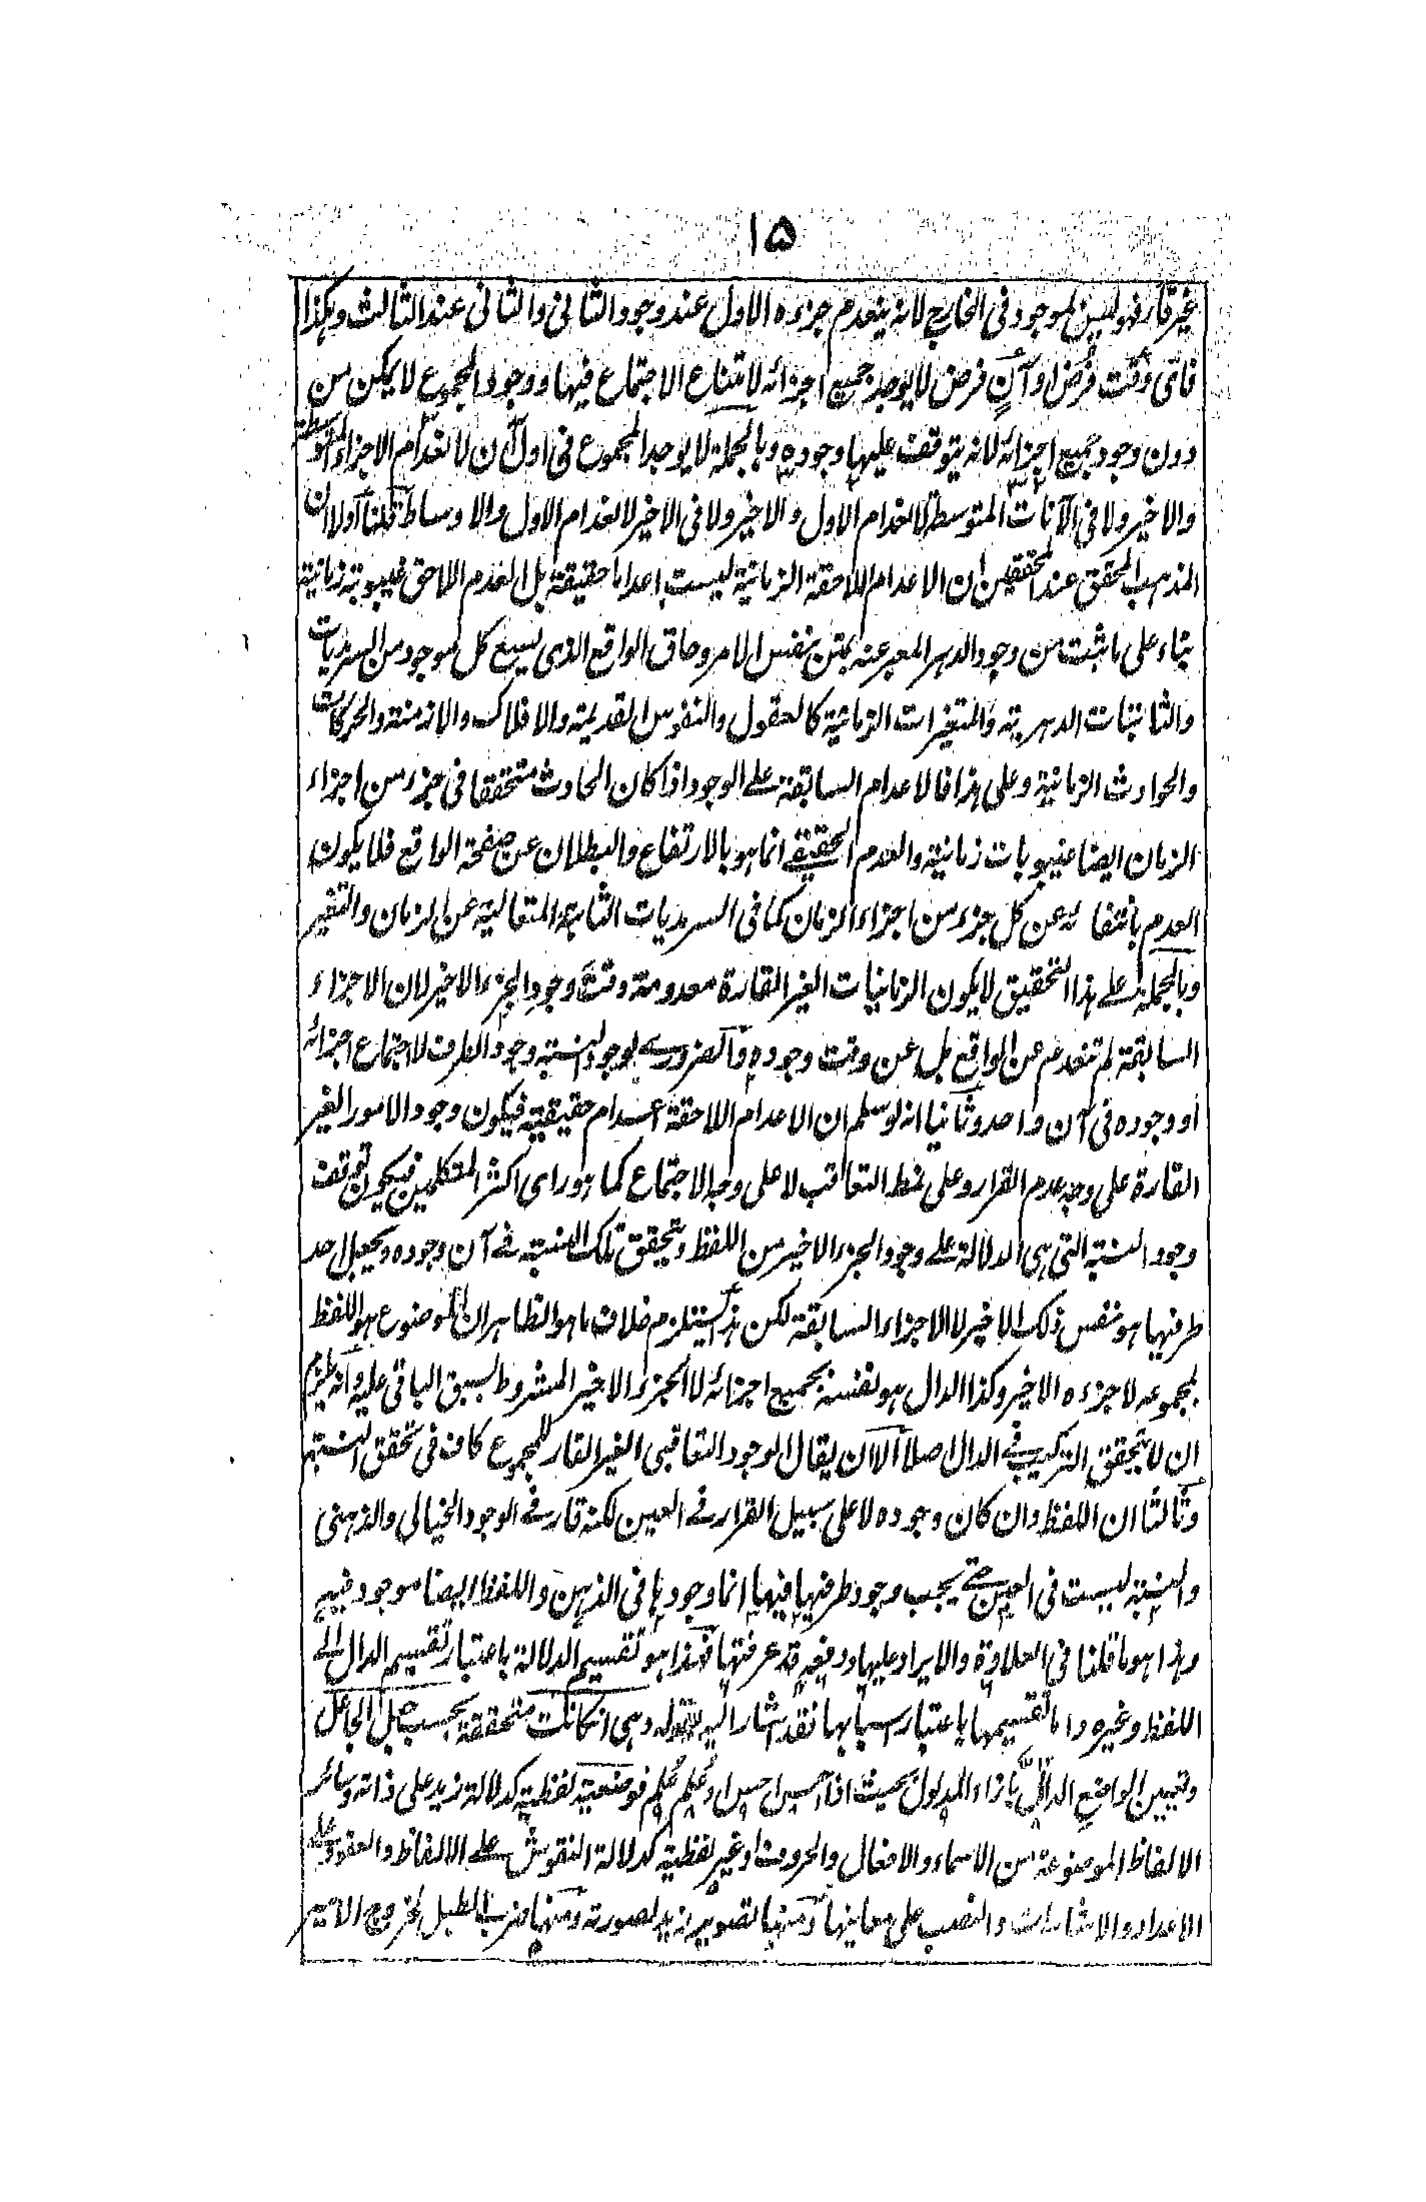 ١٥
غير قار فهو ليس بموجود في الخارج لانه ينعدم جزءه الاول عند وجود الثاني والثاني عند الثالث وهكذا
فاي وقت فرض او آن فرض لا يوجد جميع اجزائه لامتناع الاجتماع فيها ووجود المجموع لا يمكن من
دون وجود جميع اجزائه لانه يتوقف عليها وجوده وبالجملة لا يوجد المجموع في اول آن لانعدام الاجزاء المتوسطة
والاخير ولا في الآنات المتوسطة لانعدام الاول والاخير ولا في الاخير لانعدام الاول والاوساط قلنا اولا ان
المذهب المحقق عند المحققين ان الاعدام اللاحقة الزمانية ليست اعداما حقيقة بل العدم اللاحق غيبوبته زمانية
بناء على ما ثبت من وجود الدهر المعبر عنه بمتن نفس الامر وحاق الواقع الذي يسع كل موجود من السرمديات
والثابتات الدهرية والمتغيرات الزمانية كالعقول والنفوس القديمة والافلاك والازمنة والحركات
والحوادث الزمانية وعلى هذا فالاعدام السابقة على الوجود اذا كان الحادث متحققا في جزء من اجزاء
الزمان ايضا غيبوبات زمانية والعدم الحقيقي انما هو بالارتفاع والبطلان عن صفحة الواقع فلا يكون
العدم بانتفائه عن كل جزء من اجزاء الزمان كما في السرمديات الثابتة المتعالية عن الزمان والتغير
وبالجملة على هذا التحقيق لا يكون الزمانيات الغير القارة معدومة وقت وجود الجزء الاخير لان الاجزاء
السابقة لم تنعدم عن الواقع بل عن وقت وجوده والضروري لوجود النسبة وجود الطرف لا اجتماع اجزائه
او وجوده في آن واحد وثانيا انه لو سلم ان الاعدام اللاحقة اعدام حقيقية فيكون وجود الامور الغير
القارة على وجه عدم القرار وعلى نمط التعاقب لا على وجه الاجتماع كما هو راى اكثر المتكلمين فيكون توقف
وجود النسبة التي هي الدلالة على وجود الجزء الاخير من اللفظ وتحقق تلك النسبة في آن وجوده ويجعل احد
طرفيها هو نفس ذلك الاخير لا الاجزاء السابقة لكن هذا يستلزم خلاف ما هو الظاهر ان الموضوع هو اللفظ
بمجموعه لا جزءه الاخير وكذا الدال هو نفسه بجميع اجزائه لا الجزء الاخير المشروط بسبق الباقي عليه وانه يلزم
ان لا يتحقق التركيب في الدال اصلا الا ان يقال الوجود التعاقبي الغير القار للمجموع كاف في تحقق النسبة
وثالثا ان اللفظ وان كان وجوده لا على سبيل القرار في العين لكنه قار في الوجود الخيالي والذهني
والنسبة ليست في العين حتى يجب وجود طرفيها فيها انما وجودها في الذهن واللفظ ايضا موجود فيه
وهذا هو ما قلنا في العلاوة والايراد عليها ودفعه قد عرفتها فهذا هو تقسيم الدلالة باعتبار تقسيم الدال الى
اللفظ وغيره واما تقسيمها باعتبار اسبابها فقد اشار اليه بقوله وهي ان كانت متحققة بحسب جعل الجاعل
وتعيين الواضع الدال بازاء المدلول بحيث اذا احس احس او علم علم فوضعية لفظية كدلالة زيد على ذاته وسائر
الالفاظ الموضوعة من الاسماء والافعال والحروف او غير لفظية كدلالة النقوش على الالفاظ والعقود على
الاعداد والاشارات والنصب على معانيها ومنها تصوير زيد لصورته ومنها ضرب الطبل لخروج الامير